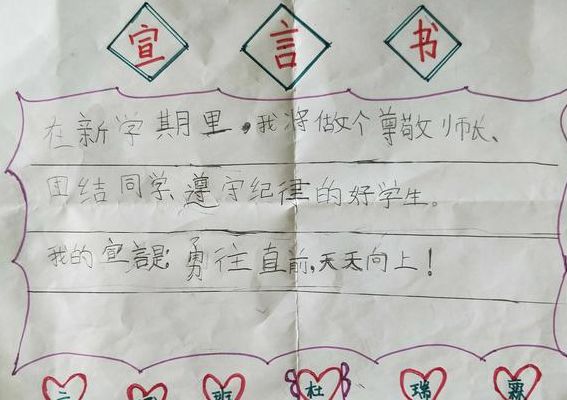 宣言书
在新学期里,我将做个尊敬师长、
团结同学、遵守纪律的好学生。
我的宣言是:勇往直前,天天向上!
二 班 杜 瑞 霖